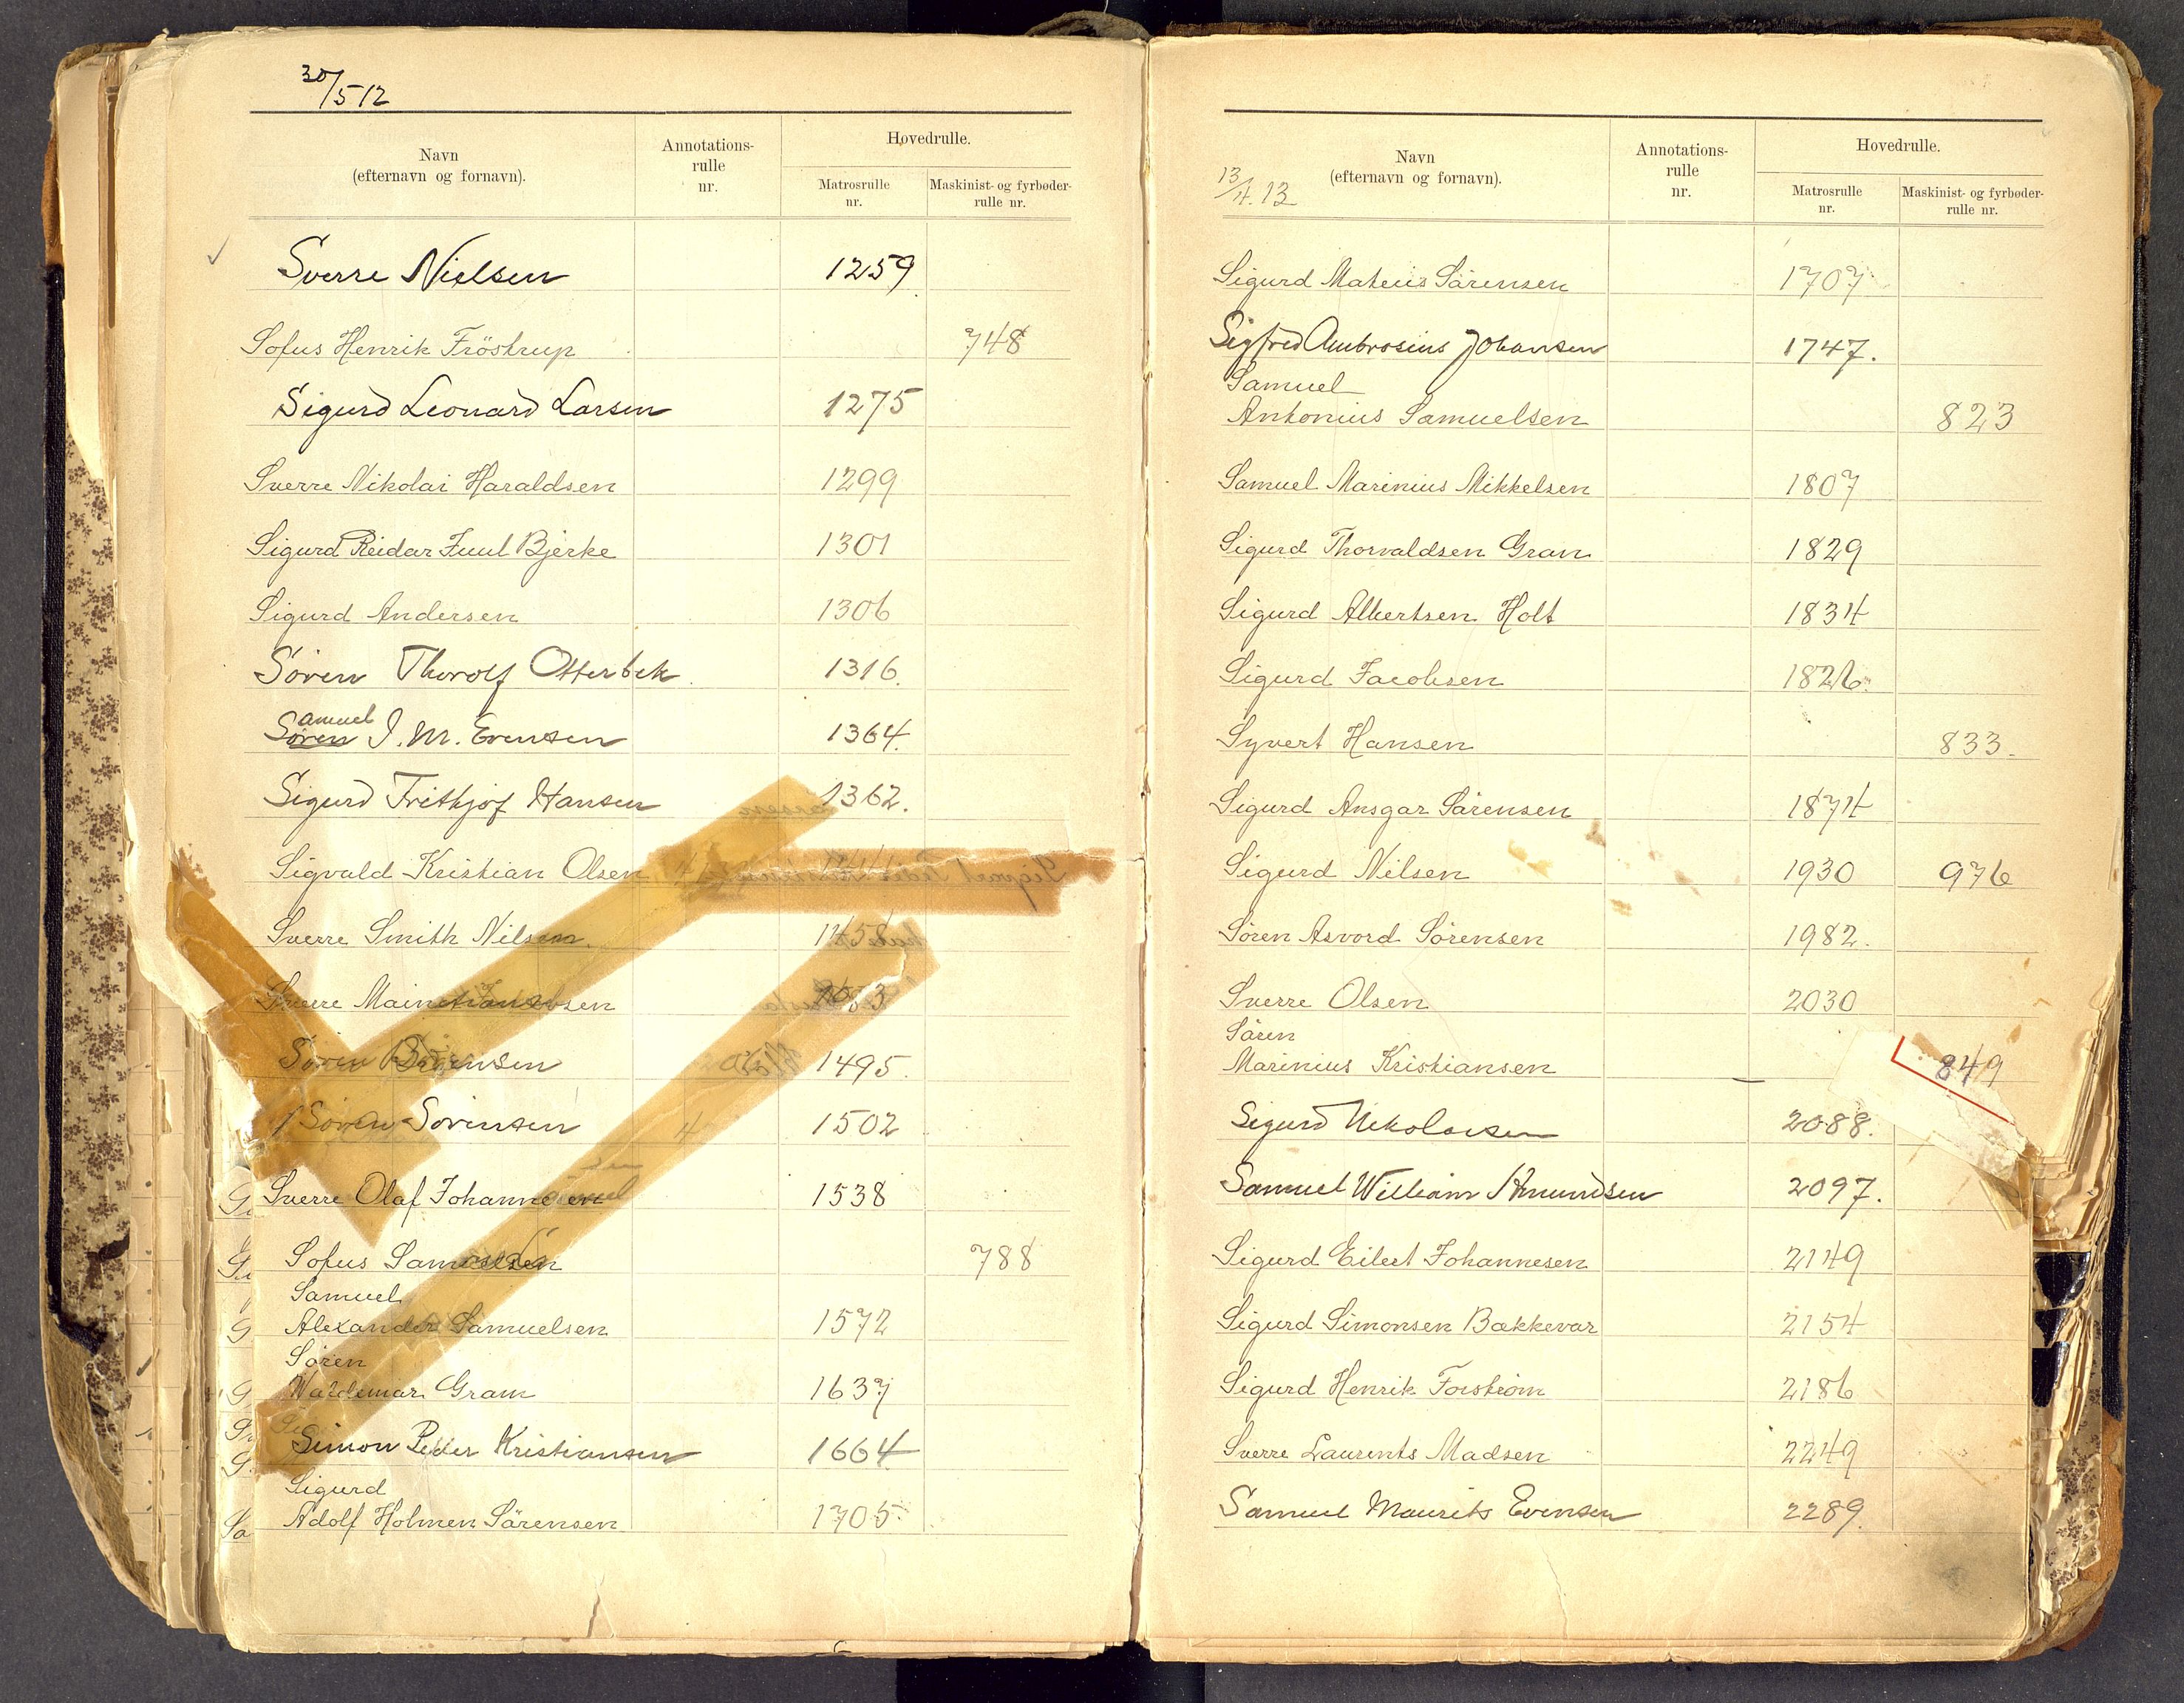 30/5 12
Navn
(efternavn og fornavn).
Annotations-
rulle
nr.
Hovedrulle.
Matrosrulle
nr.
Maskinist- og fyrbøder-
rulle nr.
Sverre Nielsen 1259
Sofus Henrik Fröstrup 748
Sigurd Leonard Larsen 1275
Sverre Nikolai Haraldsen 1299
Sigurd Reidar Juul Bjerke 1301
Sigurd Andersen 1306
Sören Thorolf Otterbek. 1316.
amuel
Søren J. M. Evensen 1364.
Sigurd Frithjof Hansen 1362.
Sigvald Kristian Olsen
Sverre Smith Nilsen.
Sverre
Søren Sørensen 1495.
Søren Sørensen 1502
Sverre Olaf Johannesen 1538
Sofus Samuelsen 788
Samuel
Alexander Samuelsen 1572
Sören
Waldemar Gram 1637
Simon Peder Kristiansen 1664
Sigurd
Adolf Holmen Sörensen 1705
13/4.13
Navn
(efternavn og fornavn).
Annotations-
rulle
nr.
Hovedrulle.
Matrosrulle
nr.
Maskinist- og fyrbøder-
rulle nr.
Sigurd Mateus Sörensen 1707
Sigfred Ambrosius Johansen 1747.
Samuel
Antonius Samuelsen 823
Samuel Marinius Mikkelsen 1807
Sigurd Thorvaldsen Gran 1829
Sigurd Albertsen Holt 1834
Sigurd Jacobsen 1826.
Syvert Hansen 833.
Sigurd Ansgar Sörensen 1874
Sigurd Nilsen 1930 976
Sören Asvord Sörensen 1982.
Sverre Olsen 2030
Sören
Marinius Kristiansen 849
Sigurd Nikolaisen 2088.
Samuel William Amundsen 2097.
Sigurd Eilert Johannesen 2149
Sigurd Simonsen Bækkevar 2154
Sigurd Henrik Forström 2186
Sverre Laurents Madsen 2249
Samuel Maurits Evensen 2289.